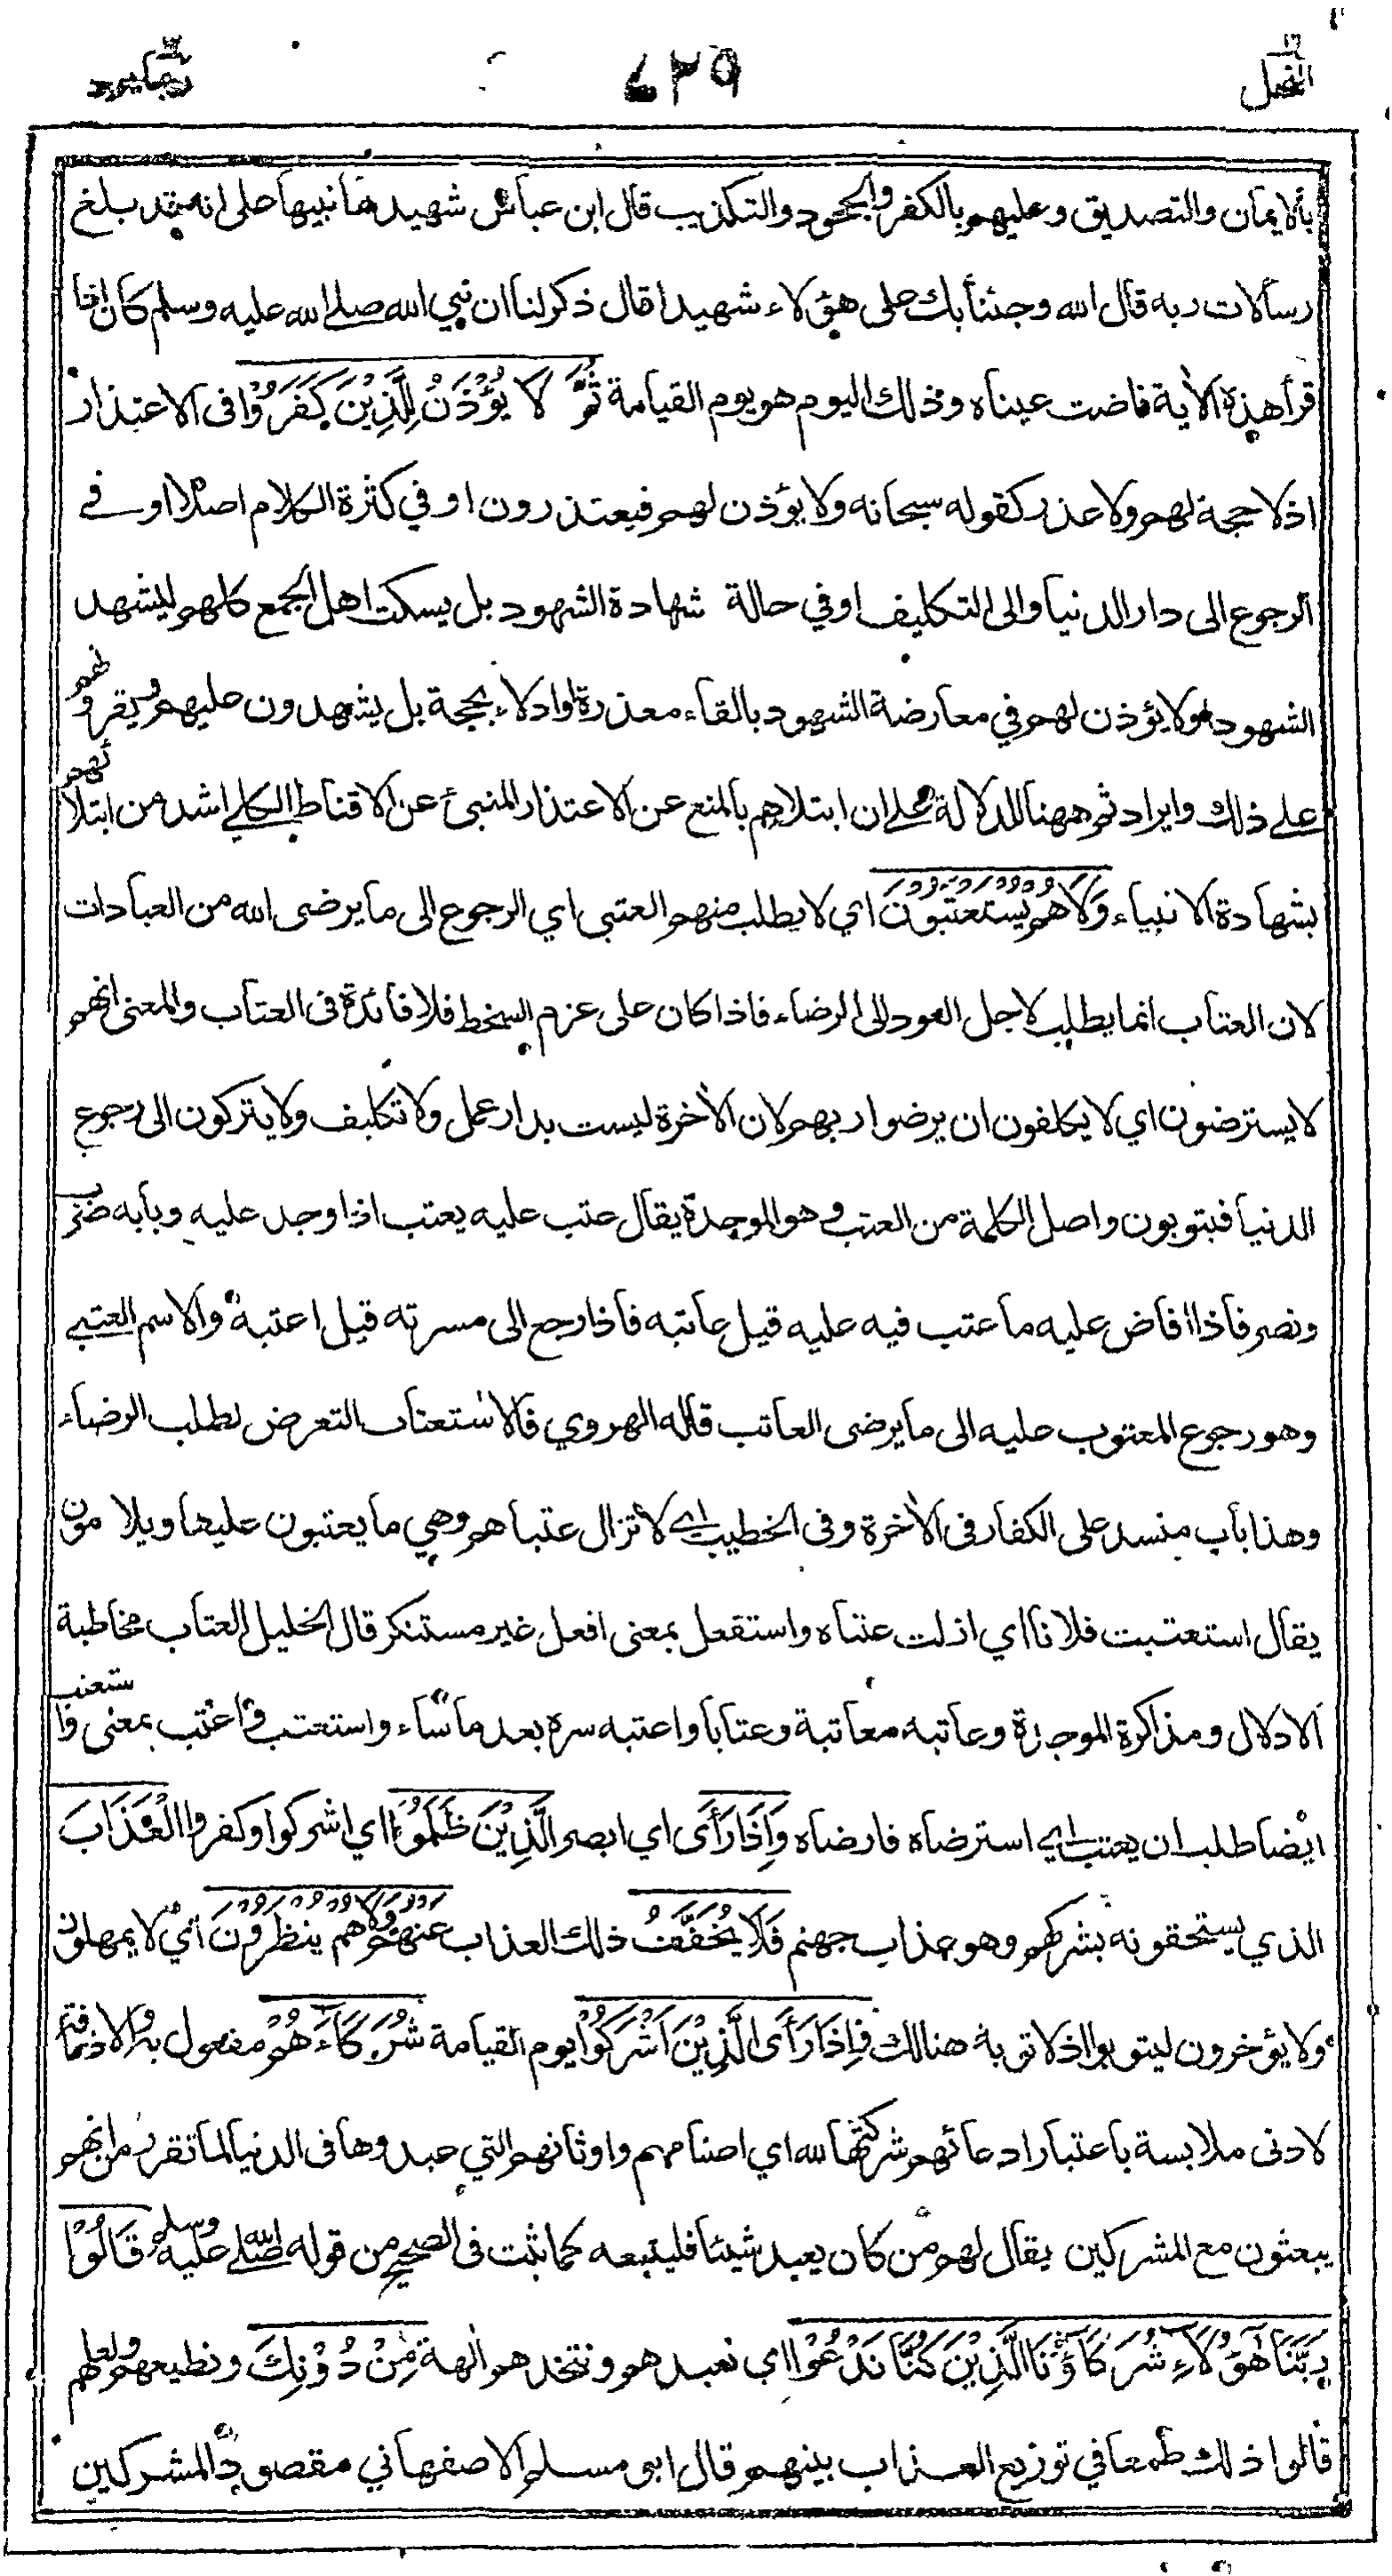 النحل ٦٢٥ ربما
بالايمان والتصديق وعليهم بالكفر والجحود والتكذيب قال ابن عباس شهيدها نبيها على انه قد بلغ
رسالات ربه قال الله وجئنا بك على هؤلاء شهيدا قال ذكر لنا ان نبي الله صلے الله عليه وسلم كان اذا
قرأ هذه الآية فاضت عيناه وذلك اليوم هو يوم القيامة ثُمَّ لَا يُؤْذَنُ لِلَّذِيْنَ كَفَرُوْا في الاعتذار
اذ لا حجة لهم ولا عذر كقوله سبحانه ولا يؤذن لهم فيعتذرون او في كثرة الكلام اصلا او في
الرجوع الى دار الدنيا والى التكليف او في حالة شهادة الشهود بل يسكت اهل الجمع كلهم ليشهد
الشهود ولا يؤذن لهم في معارضة الشهود بالقاء معذرة او ادلاء بحجة بل يشهدون عليهم ويقرونهم
على ذلك وايراد ثم ههنا للدلالة على ان ابتلاءهم بالمنع عن الاعتذار المنبئ عن الاقناط الكلي اشد من ابتلائهم
بشهادة الانبياء وَلَا هُمْ يُسْتَعْتَبُوْنَ اي لا يطلب منهم العتبى اي الرجوع الى ما يرضى الله من العبادات
لان العتاب انما يطلب لاجل العود الى الرضاء فاذا كان على عزم السخط فلا فائدة في العتاب والمعنى انهم
لا يسترضون اي لا يكلفون ان يرضوا ربهم لان الآخرة ليست بدار عمل ولا تكليف ولا يتركون الى رجوع
الدنيا فيتوبون واصل الكلمة من العتب وهو الموجدة يقال عتب عليه يعتب اذا وجد عليه وبابه ضرب
ونصر فاذا افاض عليه ما عتب فيه عليه قيل عاتبه فاذا رجع الى مسرته قيل اعتبه والاسم العتبے
وهو رجوع المعتوب عليه الى ما يرضى العاتب قاله الهروي فالاستعتاب التعرض لطلب الرضاء
وهذا باب منسد على الكفار في الآخرة وفى الخطيب اے لا تزال عتباهم وهي ما يعتبون عليها ويلامون
يقال استعتبت فلانا اي ازلت عتباه واستفعل بمعنى افعل غير مستنكر قال الخليل العتاب مخاطبة
الادلال ومذاكرة الموجدة وعاتبه معاتبة وعتابا واعتبه سره بعد ما ساء واستعتب واعتب بمعنى واستعتب
ايضا طلب ان يعتب اے استرضاه فارضاه وَاِذَا رَاَى اي ابصر الَّذِيْنَ ظَلَمُوْا اي اشركوا وكفروا الْعَذَابَ
الذي يستحقونه بشركهم وهو عذاب جهنم فَلَا يُخَفَّفُ ذلك العذاب عَنْهُمْ وَلَا هُمْ يُنْظَرُوْنَ اي لا يمهلون
ولا يؤخرون ليتوبوا اذ لا توبة هنالك فَاِذَا رَاَى الَّذِيْنَ اَشْرَكُوْا يوم القيامة شُرَكَآءَهُمْ مفعول به والاضافة
لادنى ملابسة باعتبار ادعائهم شركتها لله اي اصنامهم واوثانهم التي عبدوها في الدنيا لما تقرر من انهم
يبعثون مع المشركين يقال لهم من كان يعبد شيئا فليتبعه كما ثبت في الصحيح من قوله صلے الله عليه وسلم قَالُوْا
رَبَّنَا هٰٓؤُلَآءِ شُرَكَآؤُنَا الَّذِيْنَ كُنَّا نَدْعُوْا اي نعبدهم ونتخذهم آلهة مِنْ دُوْنِكَ ونطيعهم ولعلهم
قالوا ذلك طمعا في توزيع العذاب بينهم قال ابو مسلم الاصفهاني مقصود المشركين